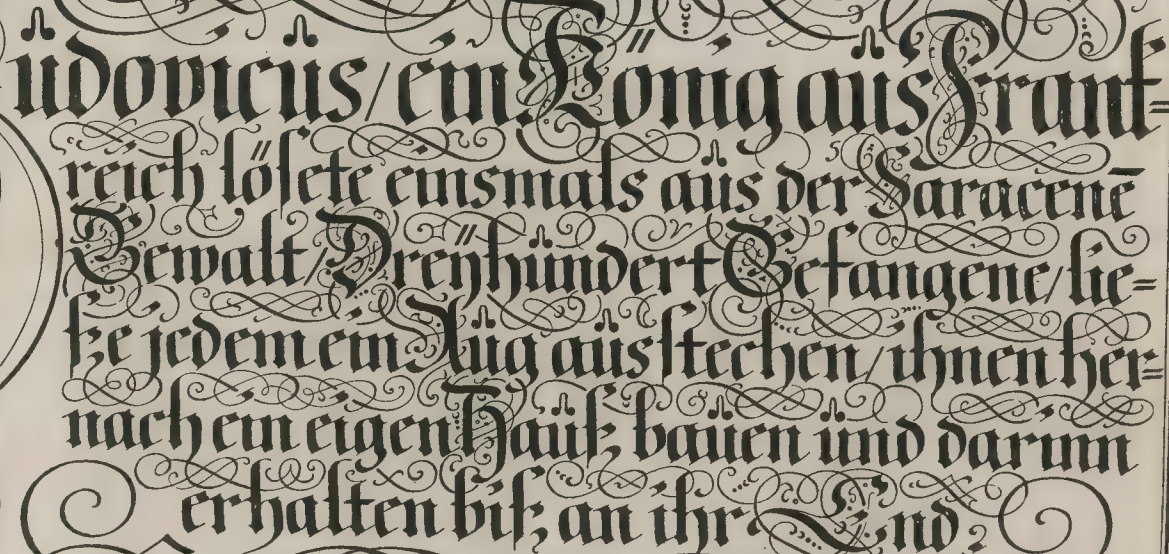 udovicus / ein König aus Frank=
reich lösete einsmals aus der Saracenē
Gewalt / Dreyhundert Gefangene / lie=
ße jedem ein Aug ausstechen / ihnen her=
nach ein eigen Hauß bauen und darinn
erhalten biß an ihr End